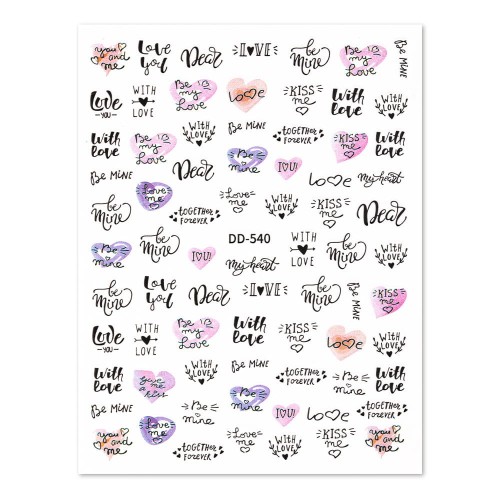 you and me
Love you
Dear
LOVE
be Mine
Be my Love
Be MiNe
Love
YOU
WITH
LOVE
Be my Love
Dear
Love
KISS me
With love
WITH LOVE
With love
Be my Love
WITH LOVE
Be MiNe
together forever
KISS me
With love
Be MiNe
Love me
Dear
Be mine
I♡U!
Love
my heart
be Mine
together forever
Love me
WITH LOVE
KISS me
Dear
Be mine
be Mine
I♡U!
DD-540
my heart
WITH
LOVE
be Mine
WITH LOVE
be Mine
Love you
Dear
LOVE
be Mine
Be MiNe
KISS me
Love
YOU
WITH
LOVE
Be my Love
With love
KISS me
Love
With love
With love
Give me a kiss
WITH LOVE
Be mine
together forever
WITH LOVE
With love
Be MiNe
Love me
Be mine
Be mine
I♡U!
Love
together forever
you and me
together forever
Love me
WITH LOVE
KISS me
you and me